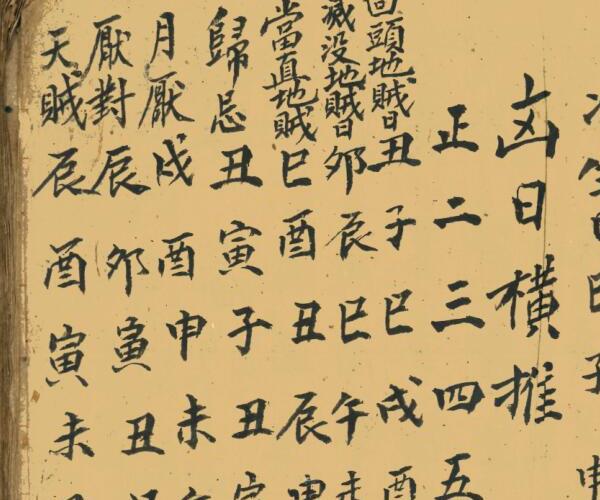 巳子申
凶日橫推
正二三四五
回頭地賊日丑子巳戌酉
滅没地賊日卯辰巳午未
當直地賊巳酉丑辰申
歸忌丑寅子丑寅
月厭戌酉申未
厭對辰卯寅丑
天賊辰酉寅未